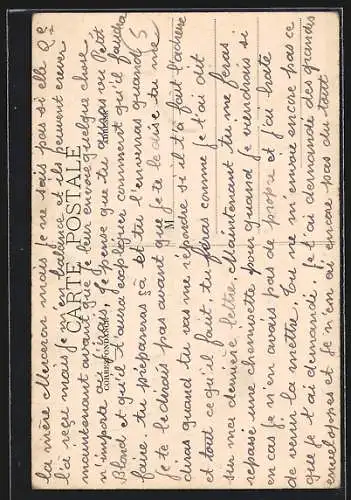 la mère Merceron mais je ne sais pas si elle
l'a reçu mais je m'en balance et ils peuvent crever
maintenant avant que je leur envoie quelque chose
n'importe Je pense que tu auras vu Petit
Blond et qu'il t'aura expliquer comment qu'il faudra
faire tu prépareras ça et tu l'enverras quand
je te le dirais pas avant que je te le dise tu me
diras quand tu vas me répondre si il t'a fait
et tout ce qu'il faut tu feras comme je t'ai dit
sur ma dernière lettre. Maintenant tu me feras
repasse une chemisette pour quand je viendrais si
en cas je n'en avais pas de propre et j'ai hate
de venir la mettre. Tu ne m'envoie encore pas ce
que je t'ai demandé. Je t'ai demandé des grandes
enveloppes et je n'en ai encore pas du tout
CARTE POSTALE
CORRESPONDANCE
ADRESSE
M